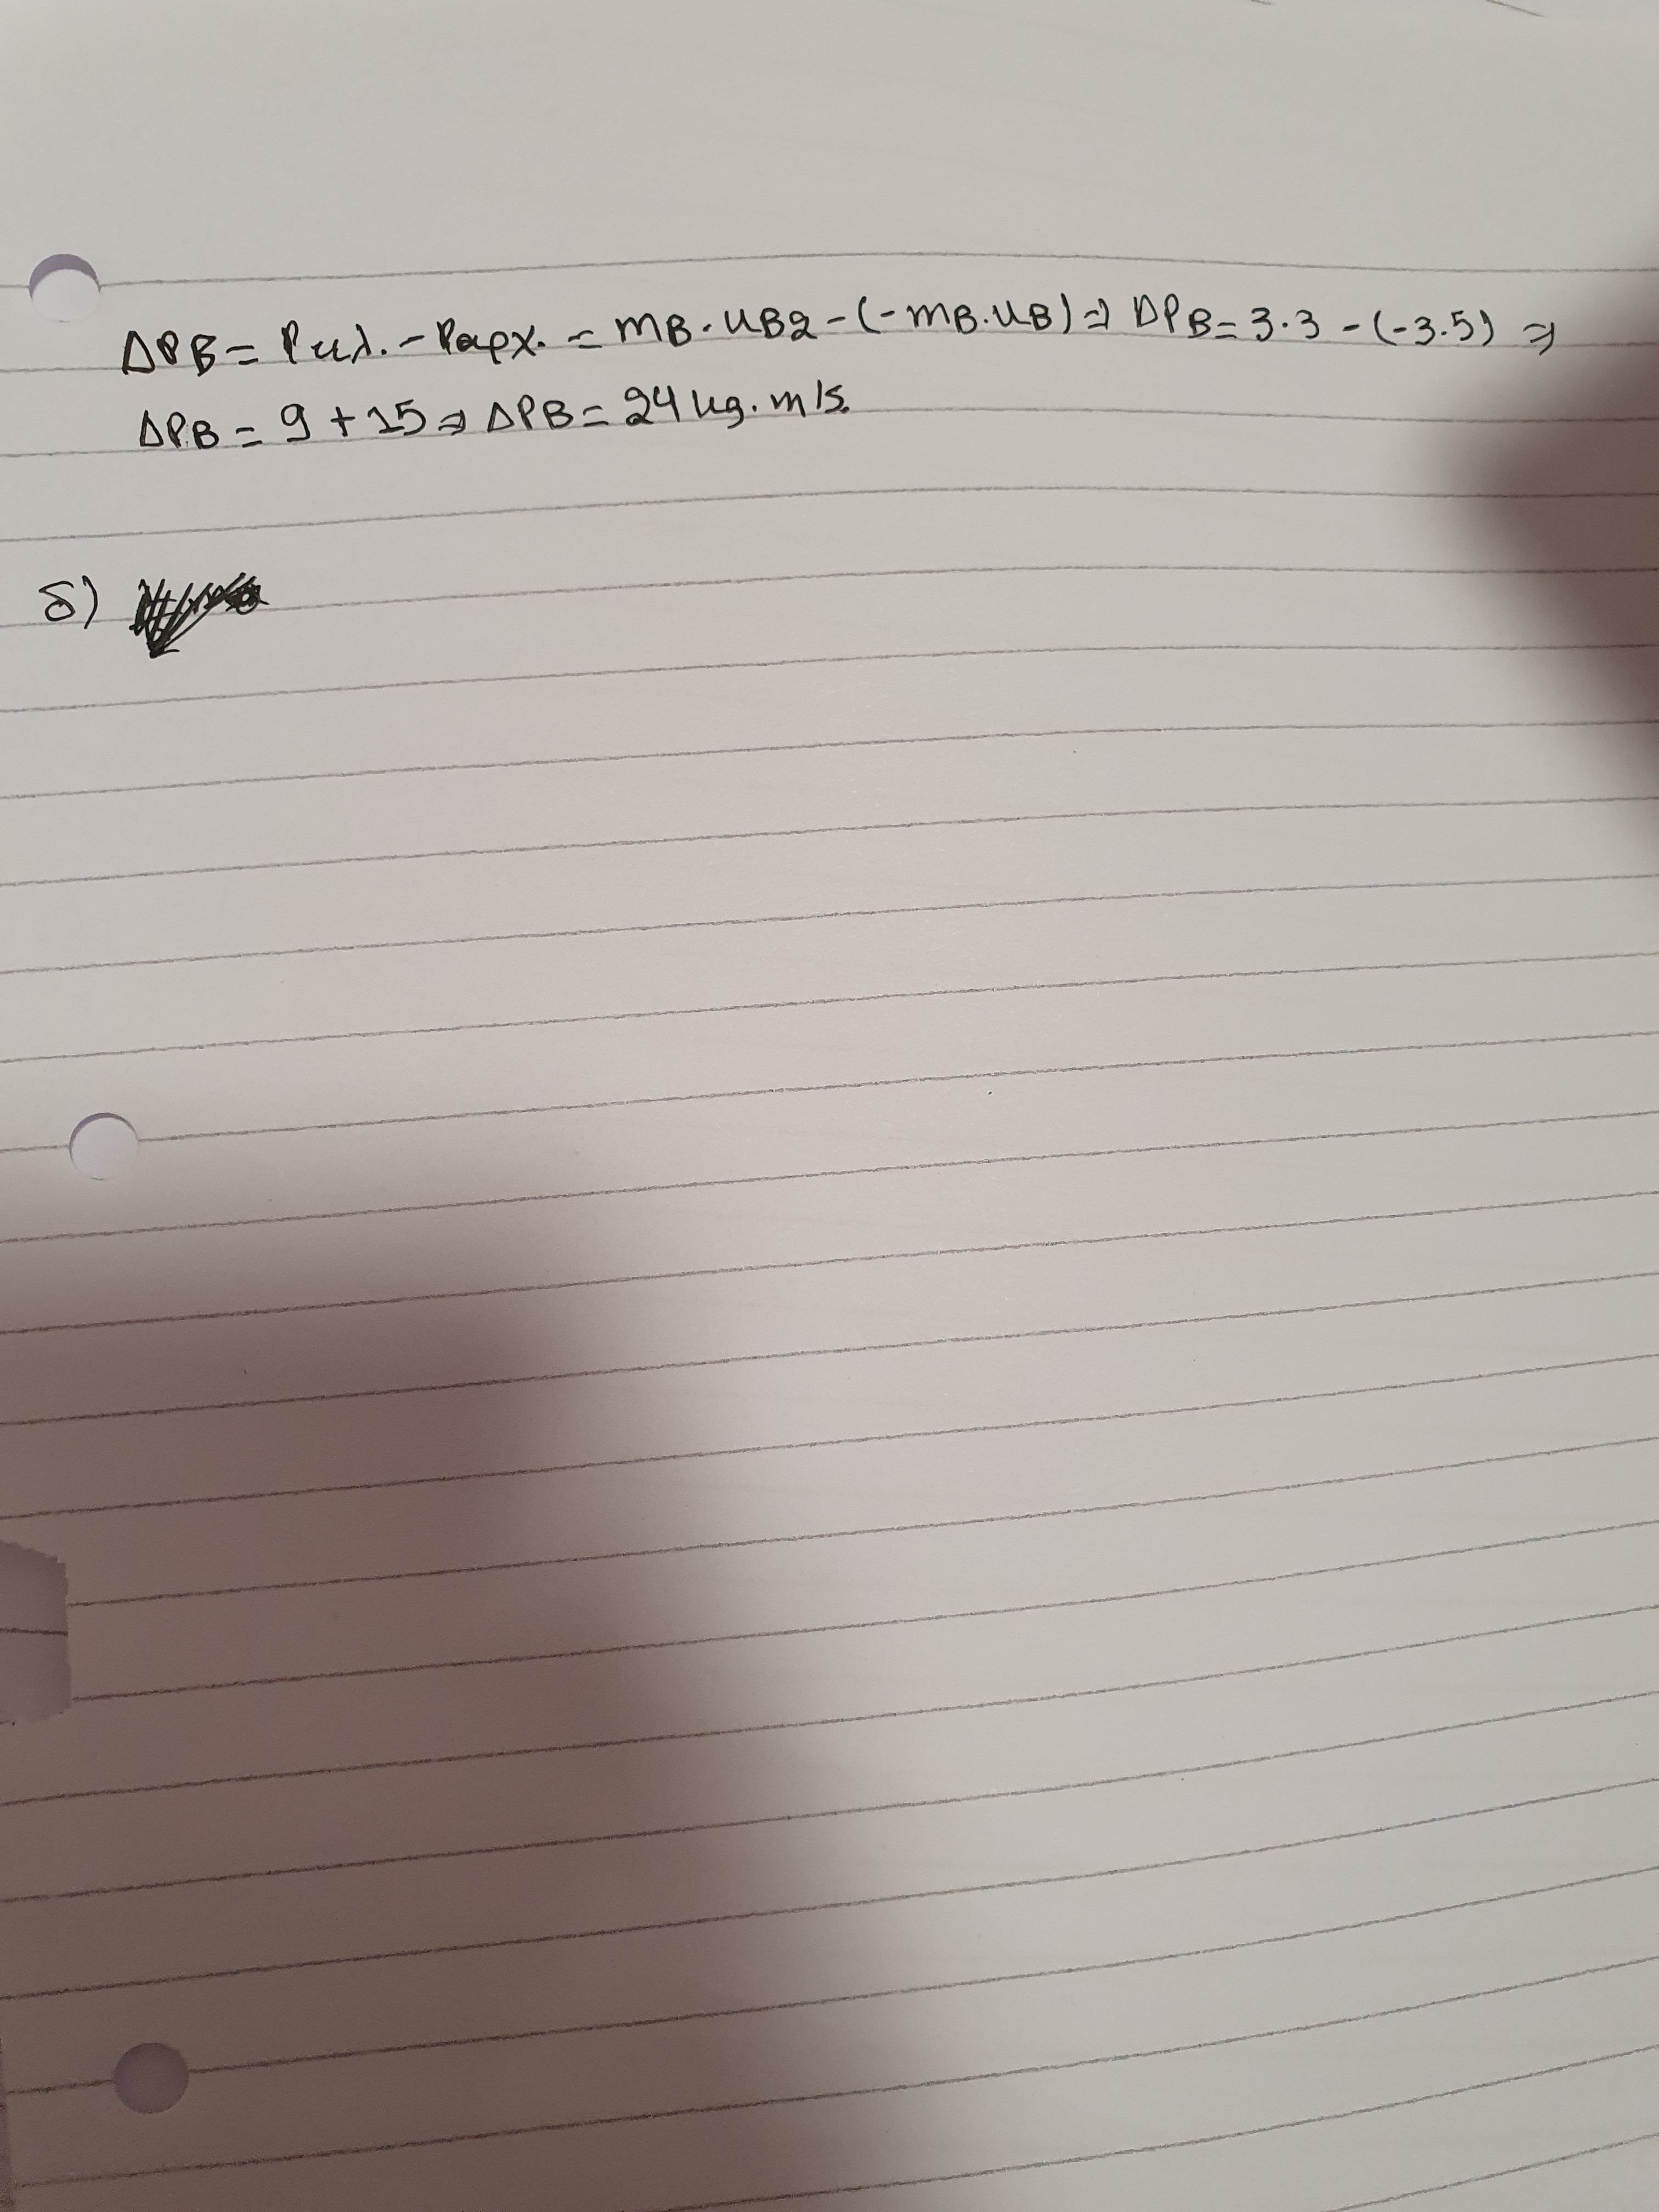 ΔPB = Pτελ. - Pαρχ. = mB · UB2 - (-mB · UB) ⇒ ΔPB = 3·3 - (-3·5) ⇒
ΔPB = 9 + 15 ⇒ ΔPB = 24 kg · m/s.
δ)